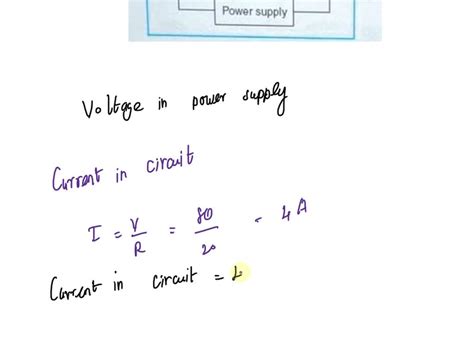 Power supply
Voltage in power supply
Current in circuit
I = V/R = 80/20 = 4A
Current in circuit = 4